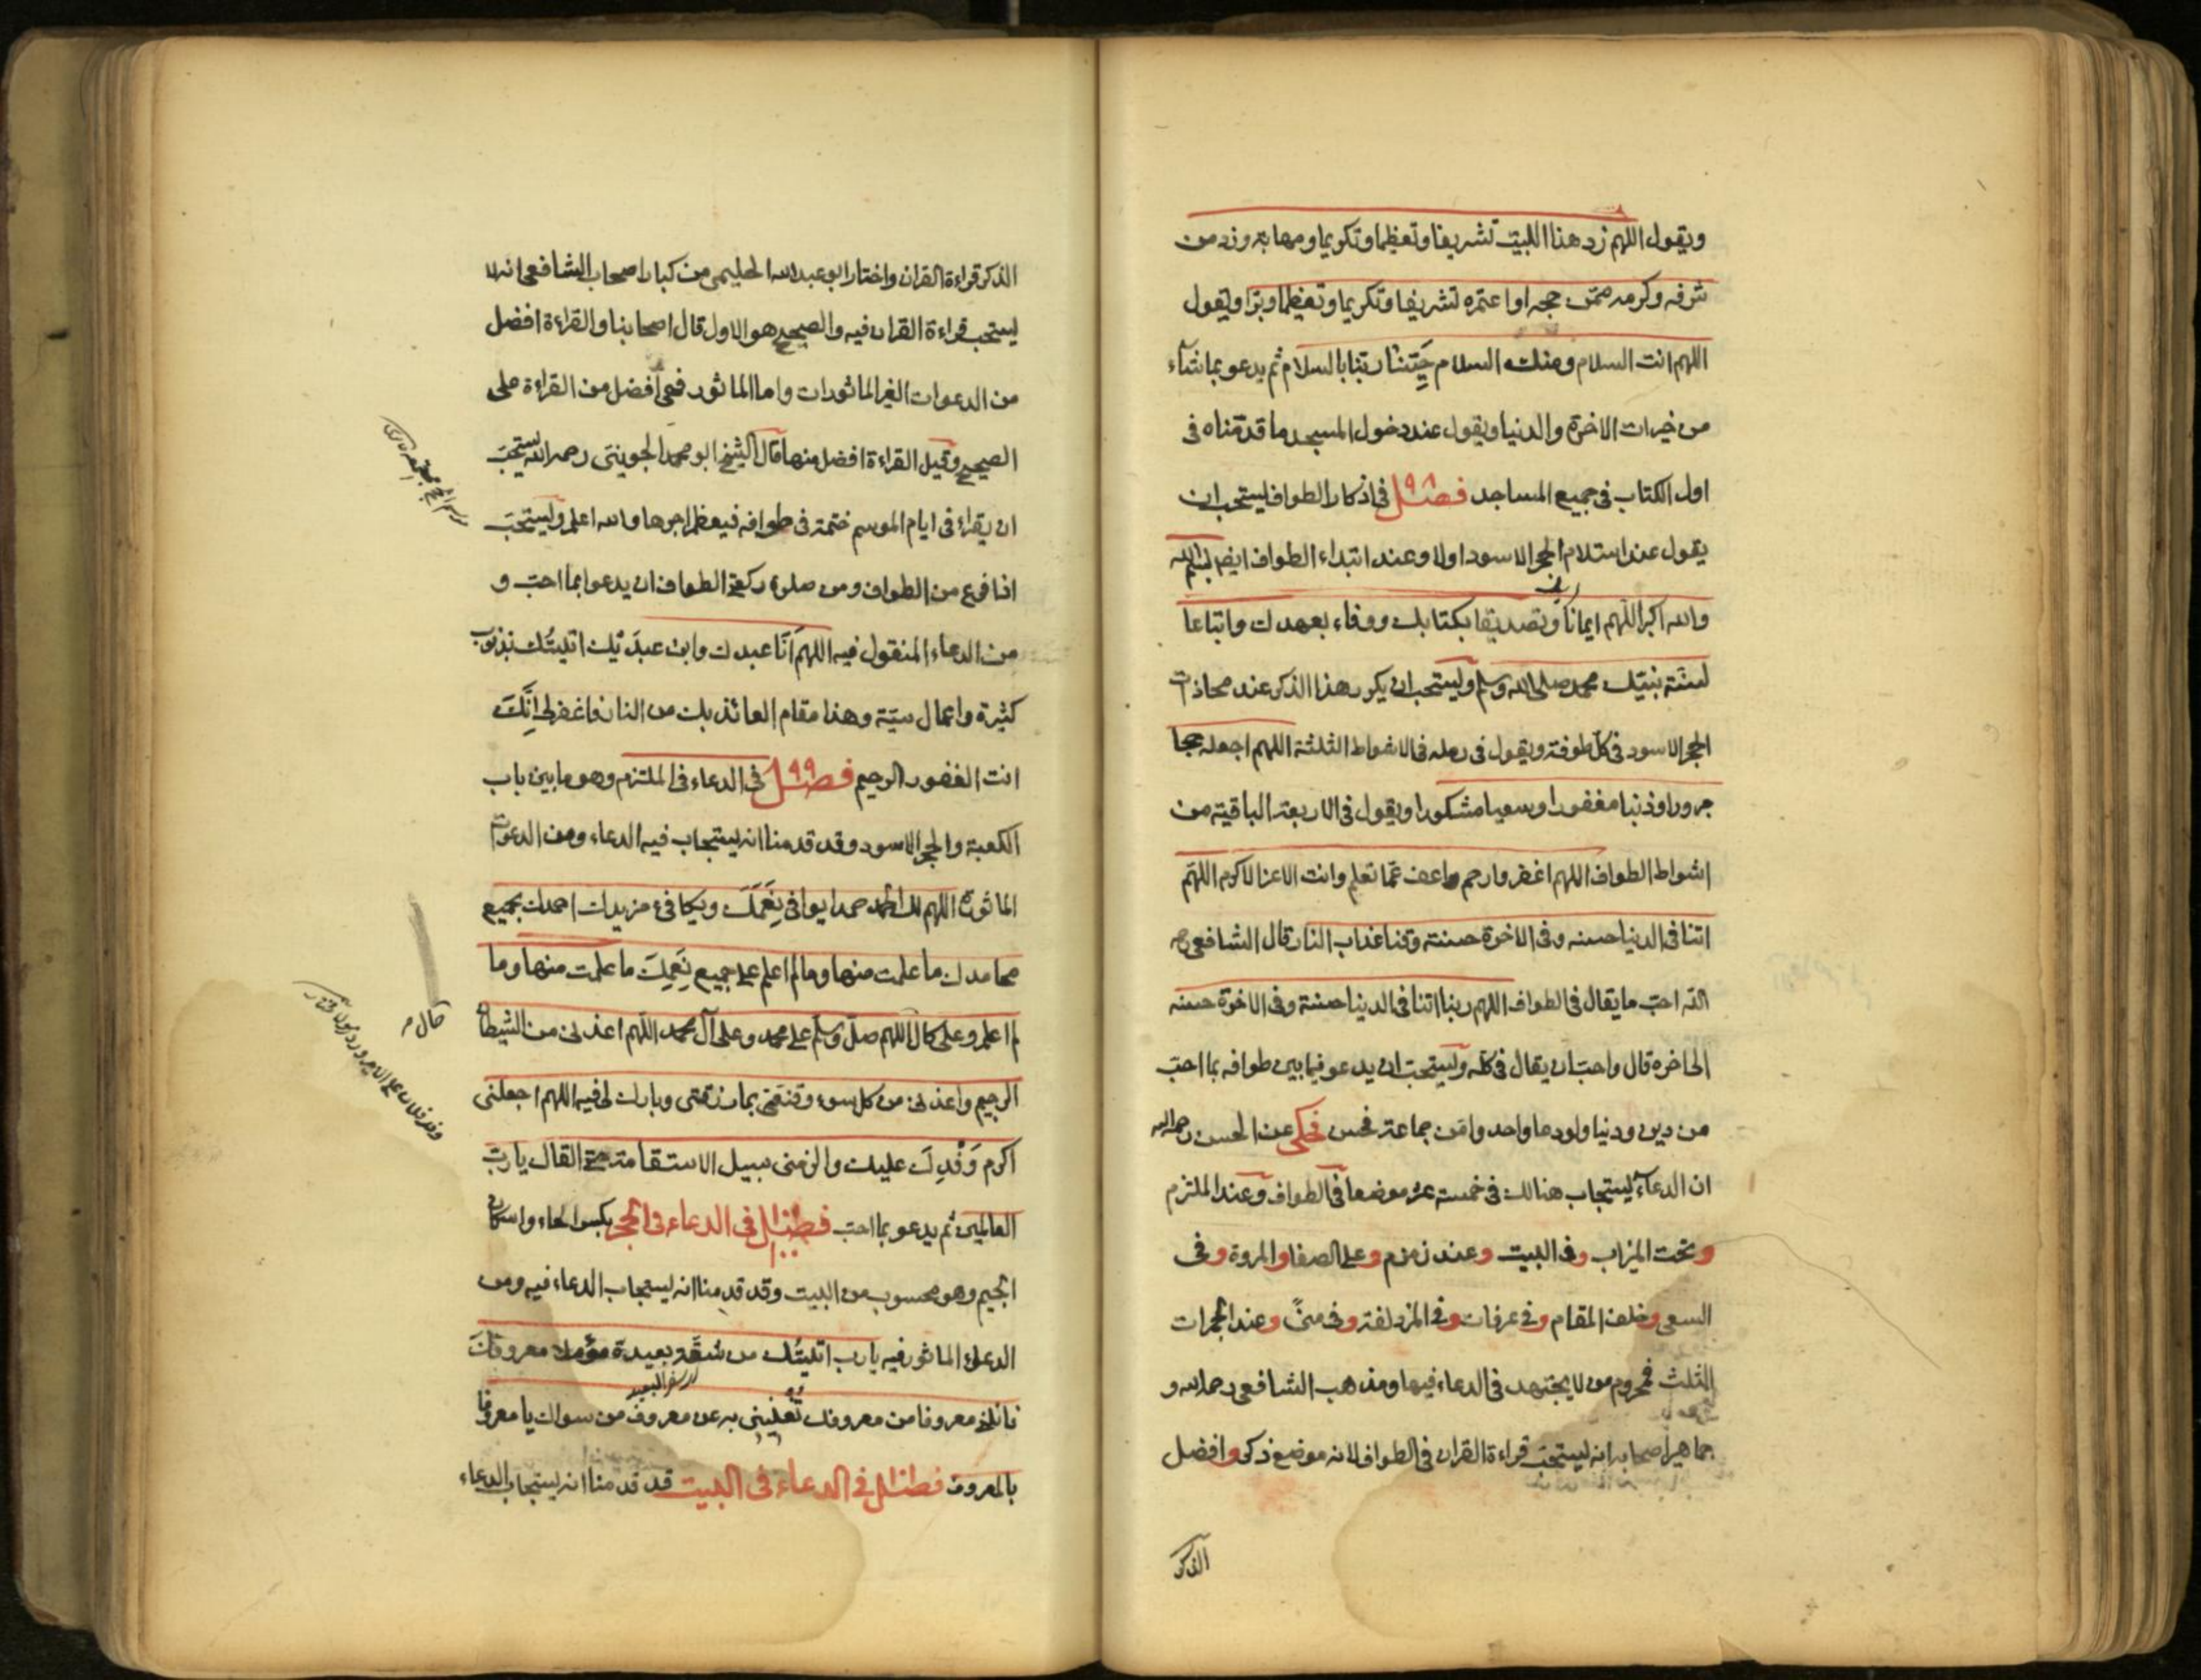 ويقول اللهم زد هذا البيت تشريفا وتعظيما وتكريما ومهابة وزد من
شرفه وكرمه ممن حجه او اعتمره تشريفا وتكريما وتعظيما وبرا ويقول
اللهم انت السلام ومنك السلام حَيِّنا ربنا بالسلام ثم يدعو بما شآء
من خيرات الاخرة والدنيا ويقول عند دخول المسجد ما قدمناه فى
اول الكتاب فى جميع المساجد فصل فى اذكار الطواف يستحب ان
يقول عند استلام الحجر الاسود اولا وعند ابتداء الطواف ايضا بسم الله
والله اكبر اللهم ايمانا بك وتصديقا بكتابك ووفاء بعهدك واتباعا
لسنة نبيك محمد صلى الله وسلم ويستحب ان يكرر هذا الذكر عند محاذات
الحجر الاسود فى كل طوفة ويقول فى رمله فى الاشواط الثلثة اللهم اجعله حجا
مبرورا وذنبا مغفورا وسعيا مشكورا ويقول فى الاربعة الباقية من
اشواط الطواف اللهم اغفر وارحم واعف عما تعلم وانت الاعز الاكرم اللهم
اتنا فى الدنيا حسنه وفى الاخرة حسنة وقنا عذاب النار قال الشافعى رحمه
الله احب ما يقال فى الطواف اللهم ربنا اتنا فى الدنيا حسنة وفى الاخرة حسنه
الى اخره قال واحب ان يقال فى كله ويستحب ان يدعو فيما بين طوافه بما احب
من دين ودنيا ولو دعا واحد وامن جماعة فحسن فحكى عن الحسن رحمه الله
ان الدعاء يستجاب هنالك فى خمسة عشر موضعا فى الطواف وعند الملتزم
وتحت الميزاب وفى البيت وعند زمزم وعلى الصفا والمروة وفى
السعى وخلف المقام وفى عرفات وفى المزدلفة وفى منى وعند الجمرات
الثلث فمحروم من لا يجتهد فى الدعاء فيها ومذهب الشافعى رحمه الله و
جماهير اصحابه انه يستحب قراءة القران فى الطواف لانه موضع ذكر وافضل
الذكر
الذكر قراءة القران واختار ابو عبد الله الحليمى من كبار اصحاب الشافعى انه لا
يستحب قراءة القران فيه والصحيح هو الاول قال اصحابنا والقراءة افضل
من الدعوات الغير الماثورات واما الماثور فهى افضل من القراءة على
الصحيح وقيل القراءة افضل منها قال الشيخ ابو محمد الجوينى رحمه الله يستحب
ان يقراء فى ايام الموسم ختمة فى طوافه فيعظم اجرها والله اعلم ويستحب
اذا فرغ من الطواف ومن صلوة ركعتى الطواف ان يدعو بما احب و
من الدعاء المنقول فيه اللهم اَنَا عبدك وابن عبدَيْك اتيتُك بذنوب
كثيرة واعمال سيئة وهذا مقام العائذ بك من النار فاغفر لى اِنَّكَ
انت الغفور الرحيم فصل ٩٩ فى الدعاء فى الملتزم وهو ما بين باب
الكعبة والحجر الاسود وقد قدمنا انه يستجاب فيه الدعاء ومن الدعوات
الماثورة اللهم لك الحمد حمدا يوافى نِعَمَكَ ويكافىء مزيدك احمدك بجميع
محامدك ما علمت منها وما لم اعلم على جميع نِعَمِكَ ما علمت منها وما
لم اعلم وعلى كل اللهم صل وسلم على محمد وعلى آل محمد اللهم اعذنى من الشيطان
حال م
الرجيم واعذنى من كل سوء وقنعنى بما رزقتنى وبارك لى فيه اللهم اجعلنى
اكرم وَفْدِكَ عليك والزمنى سبيل الاستقامة حتى القاك يا رب
العالمين ثم يدعو بما احب فصل ١٠٠ فى الدعاء فى الحجر بكسر الحاء واسكان
الجيم وهو محسوب من البيت وقد قدمنا انه يستجاب الدعاء فيه ومن
الدعاء الماثور فيه يا رب اتيتُك من شقة بعيدة مؤملا معروفك
فانلنى معروفا من معروفك تغنينى به عن معروف من سواك يا معروفا
بالمعروف فصل فى الدعاء فى البيت قد قدمنا انه يستجاب الدعاء